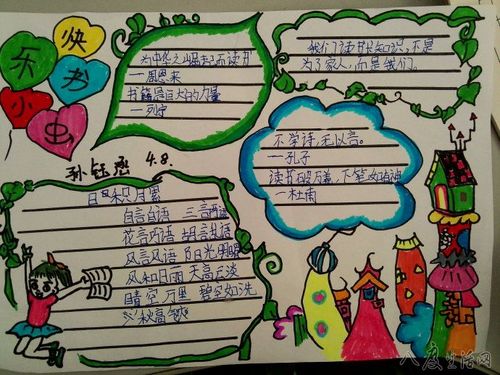 快
乐
书
小
虫
为中华之崛起而读书
一周恩来
书籍是巨大的力量
一列宁
我们读书长知识,不是
为了家人,而是我们。
不学诗,无以言。
一孔子
读书破万卷,下笔如有神
一杜甫
孙钰 4.8.
日积月累
自言自语 三言两语
花言巧语 胡言乱语
风言风语 阳光明媚
风和日丽 天高云淡
晴空万里 碧空如洗
秋高气
八度生活网